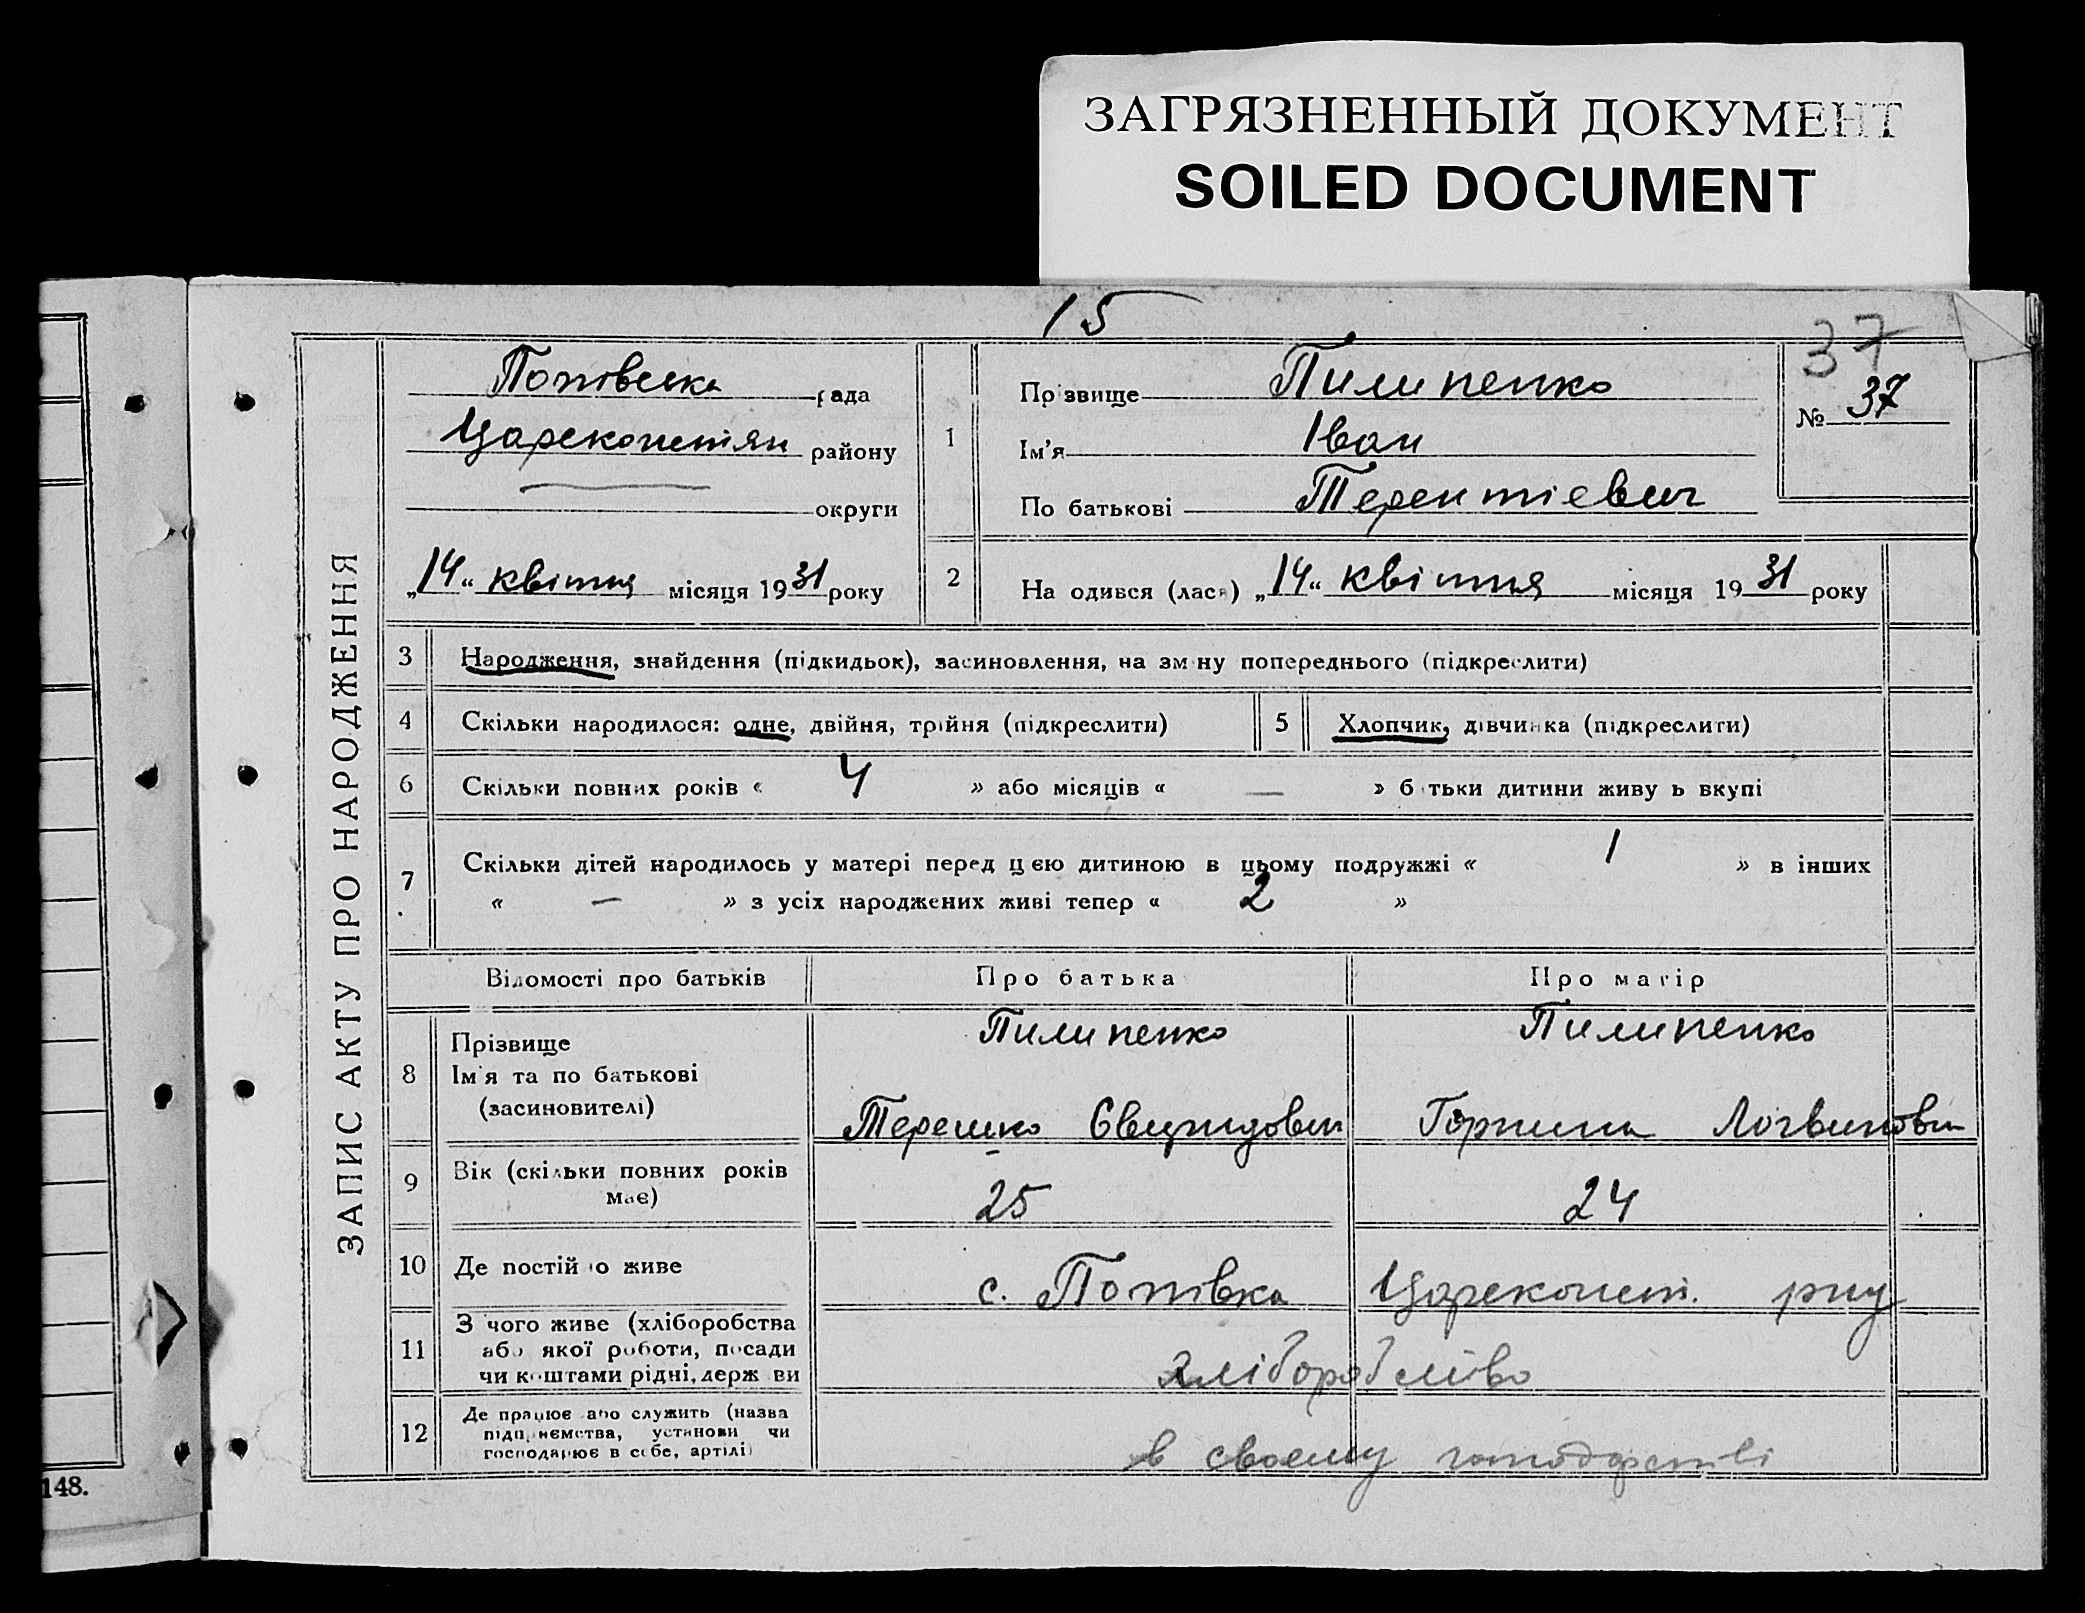 ЗАГРЯЗНЕННЫЙ ДОКУМЕНТ
SOILED DOCUMENT
15
37
ЗАПИС АКТУ ПРО НАРОДЖЕННЯ
Попівська рада
Царекостян району
округи
„14“ квітня місяця 1931 року
№ 37
1
Прізвище Пилипенко
Ім'я Іван
По батькові Терентієвич
2
На одився (лася) „14“ квітня місяця 1931 року
3 Народження, знайдення (підкидьок), засиновлення, на зм ну попереднього (підкреслити)
4 Скільки народилося: одне, двійня, трійня (підкреслити)
5 Хлопчик, дівчинка (підкреслити)
6 Скільки повних років « 4 » або місяців « — » б тьки дитини живу ь вкупі
7 Скільки дітей народилось у матері перед цією дитиною в цьому подружжі « 1 » в інших
« — » з усіх народжених живі тепер « 2 »
Відомості про батьків Про батька Про матір
8 Прізвище Пилипенко Пилипенко
Ім'я та по батькові
(засиновителі) Терешко Горпина Логвиновн
9 Вік (скільки повних років
має) 25 24
10 Де постій о живе с. Попівка Царекост. рну
11 З чого живе (хліборобства
або якої роботи, посади
чи коштами рідні, держ ви
хліборобство
12 Де працює або служить (назва
підприємства, установи чи
господарює в себе, артілі)
в своєму господарстві
148.